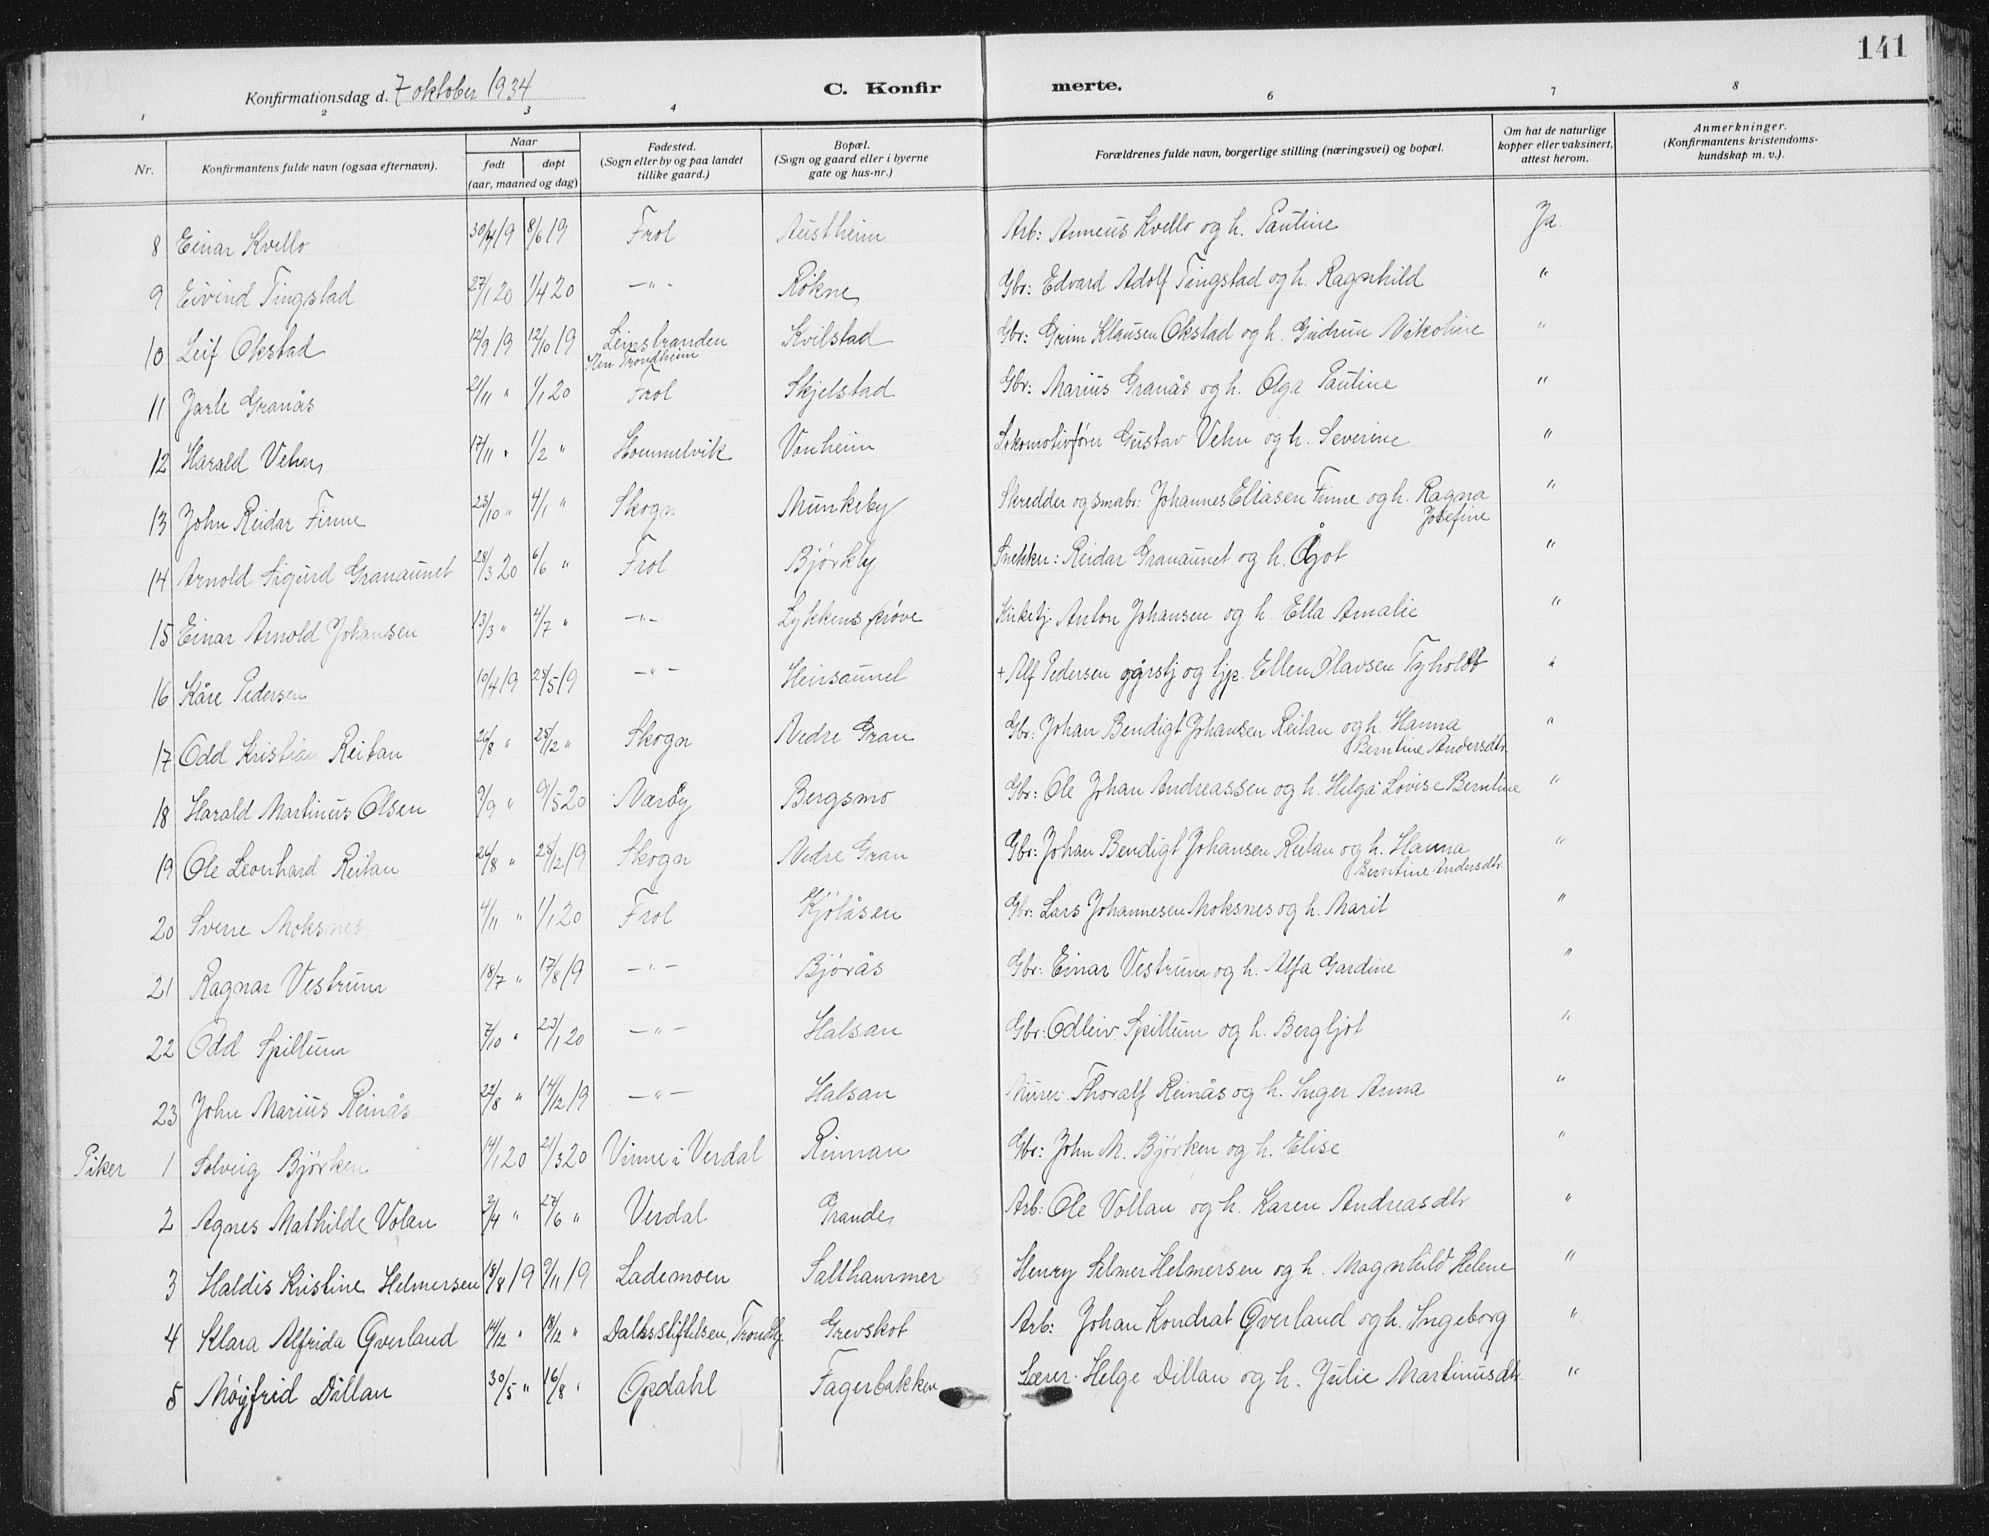 141
Konfirmationsdag d. 7 oktober 1934
C. Konfir merte.
1 2 3 4 6 7 8
Nr. Konfirmantens fulde navn (ogsaa efternavn). Naar født døpt (aar, maaned og dag) Fødested. (Sogn eller by og paa landet tillike gaard.) Bopæl. (Sogn og gaard eller i byerne gate og hus-nr.) Forældrenes fulde navn, borgerlige stilling (næringsvei) og bopæl. Om hat de naturlige kopper eller vaksinert, attest herom. Anmerkninger. (Konfirmantens kristendoms- kundskap m. v.).
8 Einar Kvello 30/4 19 8/6 19 Frol Austheim Arb: Anneus Kvello og h. Pauline Ja.
9 Eivind Tingstad 27/1 20 1/4 20 —"— Røkne Gbr: Edvard Adolf Tingstad og h. Ragnhild "
10 Leif Okstad 12/9 19 12/10 19 Leinstranden Kvilstad Gbr: Grim Klausen Okstad og h. Gudrun Nikoline "
Trondheim
11 Jarle Granås 21/11 " 1/1 20 Frol Skjelstad Gbr: Marius Granås og h. Olga Pauline "
12 Harald Vehn 17/11 " 1/2 " Hommelvik Vonheim Lokomotivfører Gustav Vehn og h. Severine "
13 John Reidar Finne 23/10 " 4/1 " Skogn Munkeby Skredder og småbr: Johannes Eliasen Finne og h. Ragna "
Josefine
14 Arnold Sigurd Granaunet 28/3 20 6/6 " Frol Bjørkly Snekker: Reidar Granaunet og h. Ågot "
15 Einar Arnold Johansen 13/3 " 4/7 " —"— Lykkens prøve Kirketj. Anton Johansen og h. Ella Amalie "
16 Kåre Pedersen 10/4 19 25/5 19 —"— Heirsaunet + Alf Pedersen og Ellen Olavsen Tyholdt "
17 Odd Kristian Reitan 26/8 " 28/12 " Skogn Nedre Gran Gbr: Johan Bendigt Johansen Reitan og h. Hanna "
Berntine Andersdtr.
18 Harald Martinus Olsen 9/9 " 9/5 20 Nærøy Bergsmo Gbr: Ole Johan Andreassen og h. Helga Lovise Berntine "
19 Ole Leonhard Reitan 26/8 " 28/12 19 Skogn Nedre Gran Gbr: Johan Bendigt Johansen Reitan og h. Hanna "
Berntine Andersdtr.
20 Sverre Moksnes 4/11 " 1/1 20 Frol Kjølåsen Gbr: Lars Johannesen Moksnes og h. Marit "
21 Ragnar Vestrum 18/7 " 17/8 19 —"— Bjørås Gbr: Einar Vestrum og h. Alfa Gardine "
22 Odd Spillum 7/10 " 23/1 20 —"— Halsan Gbr: Odleiv Spillum og h. Bergljot "
23 John Marius Reinås 22/8 " 14/12 19 —"— Halsan Murer Thoralf Reinås og h. Inger Anna "
Piker 1 Solveig Bjørken 14/1 20 21/3 20 Vinne i Verdal Rinnan Gbr: John M. Bjørken og h. Elise "
2 Agnes Mathilde Volan 2/4 " 27/6 " Verdal Grande Arb: Ole Vollan og h. Karen Andreasdtr "
3 Haldis Kristine Helmersen 18/8 19 9/11 19 Lademoen Salthammer Henry Selmer Helmersen og h. Magnhild Helene "
4 Klara Alfrida Øverland 14/12 " 18/12 " Dalhsstiftelsen, Trondhj. Grevskot Arb: Johan Kondrat Øverland og h. Ingeborg "
5 Møyfrid Dillan 30/5 " 16/8 " Opdahl Fagerbakken Lærer Helge Dillan og h. Julie Martinusdtr. "